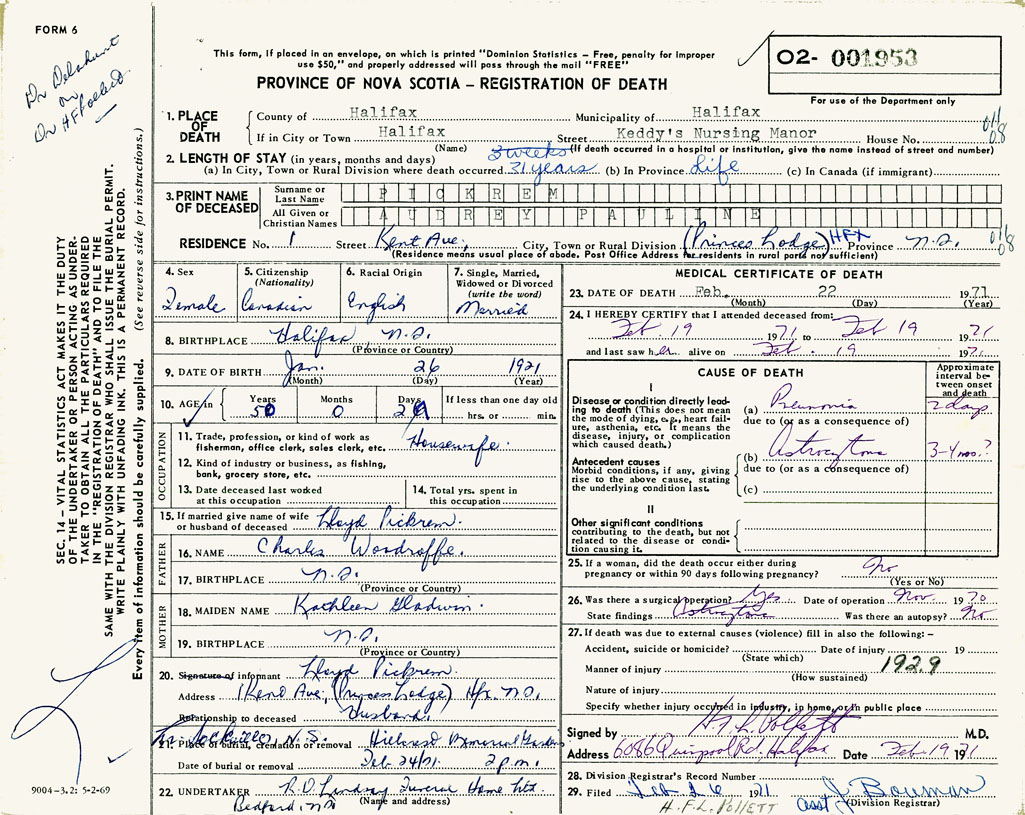 FORM 6
Dr Delahunt
or
Dr HF Pollett
SEC. 14 – VITAL STATISTICS ACT MAKES IT THE DUTY
OF THE UNDERTAKER OR PERSON ACTING AS UNDER-
TAKER TO OBTAIN ALL THE PARTICULARS REQUIRED
IN THE "REGISTRATION OF DEATH" AND TO FILE THE
SAME WITH THE DIVISION REGISTRAR WHO SHALL ISSUE THE BURIAL PERMIT.
WRITE PLAINLY WITH UNFADING INK. THIS IS A PERMANENT RECORD.
Every item of information should be carefully supplied. (See reverse side for instructions.)
9004-3.2: 5-2-69
This form, if placed in an envelope, on which is printed "Dominion Statistics – Free, penalty for improper
use $50," and properly addressed will pass through the mail "FREE"
PROVINCE OF NOVA SCOTIA – REGISTRATION OF DEATH
02- 001953
For use of the Department only
1. PLACE OF DEATH
County of Halifax Municipality of Halifax
If in City or Town Halifax Street Keddy's Nursing Manor House No.
(Name) (If death occurred in a hospital or institution, give the name instead of street and number)
08
2. LENGTH OF STAY (in years, months and days) 3 weeks
(a) In City, Town or Rural Division where death occurred 31 years (b) In Province Life (c) In Canada (if immigrant)
3. PRINT NAME OF DECEASED
Surname or Last Name PICKREM
All Given or Christian Names AUDREY PAULINE
RESIDENCE No. 1 Street Kent Ave., City, Town or Rural Division (Princes Lodge) HFX Province N.S.
08
(Residence means usual place of abode. Post Office Address for residents in rural parts not sufficient)
4. Sex Female
5. Citizenship (Nationality) Canadian
6. Racial Origin English
7. Single, Married, Widowed or Divorced (write the word) Married
8. BIRTHPLACE Halifax N.S.
(Province or Country)
9. DATE OF BIRTH Jan. 26 1921
(Month) (Day) (Year)
10. AGE in Years 50 Months 0 Days If less than one day old hrs. or min.
OCCUPATION
11. Trade, profession, or kind of work as
fisherman, office clerk, sales clerk, etc. Housewife.
12. Kind of industry or business, as fishing,
bank, grocery store, etc.
13. Date deceased last worked
at this occupation
14. Total yrs. spent in
this occupation
15. If married give name of wife
or husband of deceased Lloyd Pickrem.
FATHER
16. NAME Charles Woodroffe.
17. BIRTHPLACE N.S.
(Province or Country)
MOTHER
18. MAIDEN NAME Kathleen Gladwin.
19. BIRTHPLACE N.S.
(Province or Country)
20. Signature of informant Lloyd Pickrem.
Address 1 Kent Ave, (Princes Lodge) Hfx. N.S.
Relationship to deceased Husband.
N.S.
21. Place of burial, cremation or removal Hillcrest Memorial Gardens
Date of burial or removal Feb. 24/71. 2 p.m.
22. UNDERTAKER R.D. Lindsay Funeral Home Ltd.
(Name and address)
Bedford, N.S.
MEDICAL CERTIFICATE OF DEATH
23. DATE OF DEATH Feb. 22 1971
(Month) (Day) (Year)
24. I HEREBY CERTIFY that I attended deceased from:
Feb 19 1971 to Feb 19 1971
and last saw her alive on Feb. 19 1971
CAUSE OF DEATH
Approximate interval between onset and death
I
Disease or condition directly leading
to death (This does not mean
the mode of dying, e.g., heart failure,
asthenia, etc. It means the
disease, injury, or complication
which caused death.)
(a) Pneumonia 2 days
due to (or as a consequence of)
Antecedent causes
Morbid conditions, if any, giving
rise to the above cause, stating
the underlying condition last.
(b) Astrocytoma 3-4 mo.?
due to (or as a consequence of)
(c)
II
Other significant conditions
contributing to the death, but not
related to the disease or condition
causing it.
25. If a woman, did the death occur either during
pregnancy or within 90 days following pregnancy? No
(Yes or No)
26. Was there a surgical operation? Yes Date of operation Nov. 1970
State findings Astrocytoma Was there an autopsy? No
27. If death was due to external causes (violence) fill in also the following: –
Accident, suicide or homicide? Date of injury 19
(State which)
Manner of injury 1929
(How sustained)
Nature of injury
Specify whether injury occurred in industry, in home, or in public place
Signed by H.F.L. Pollett M.D.
Address 6086 Quinpool Rd. Halifax Date Feb 19 1971
28. Division Registrar's Record Number
29. Filed Feb 26 1971 Asst J Bowman
(Division Registrar)
H.F.L. POLLETT